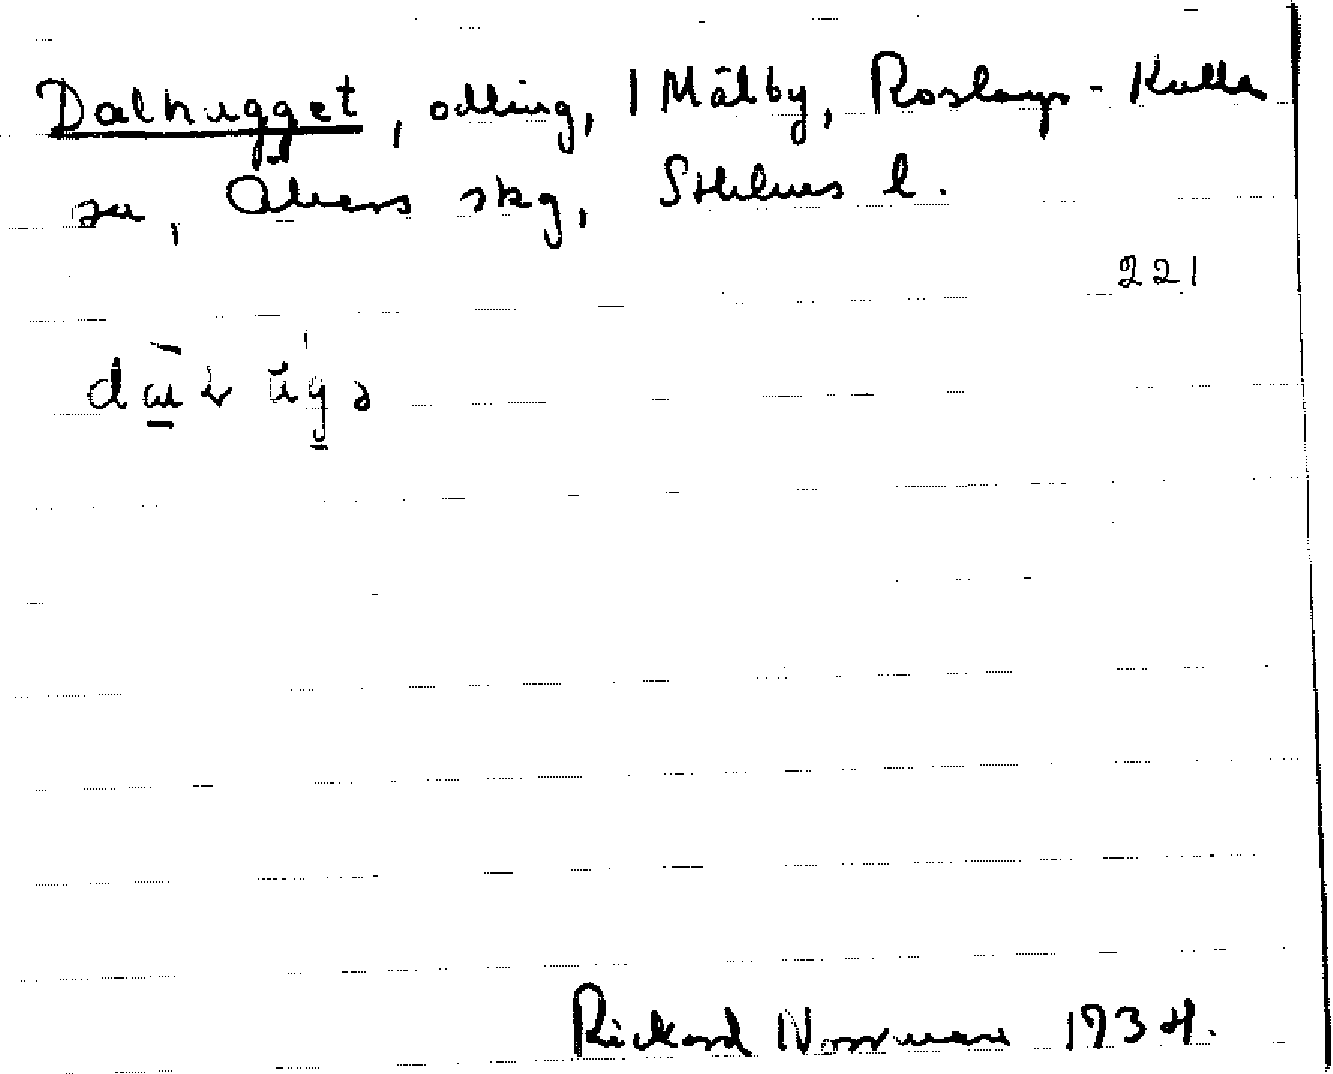 Dalhugget, odling, 1 Målby, Roslags-Kulla
sn, Åkers skg, Sthlms l.
221
Rickard Norrman 1934.